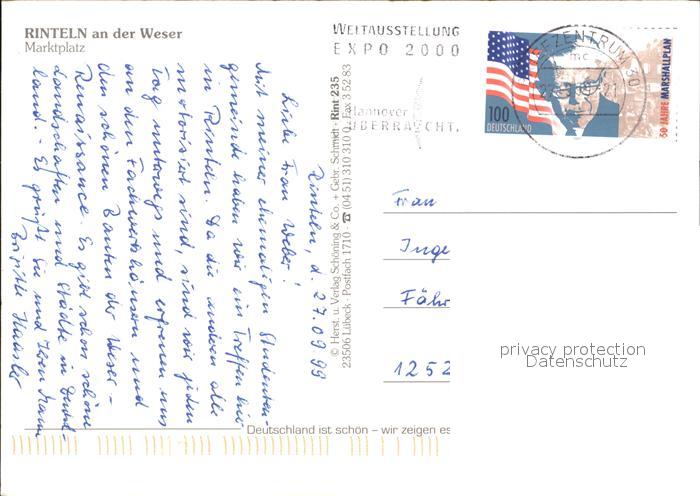 RINTELN an der Weser
Marktplatz
WELTAUSSTELLUNG
EXPO 2000
Hannover
ÜBERRASCHT.
FZENTRUM 30
mc
100
DEUTSCHLAND
50 JAHRE MARSHALLPLAN
Rinteln, d. 27.09.99
Liebe Frau Weber!
Mit meiner ehemaligen Studenten-
gemeinde haben wir ein Treffen hier
in Rinteln. Da die anderen alle
motorisiert sind, sind wir jeden
Tag unterwegs und erfreuen uns
an den Fachwerkhäusern und
den schönen Bauten der Weser-
Renaissance. Es gibt schon schöne
Landschaften und Städte in Deutsch-
land. - Es grüßt Sie und Ihren Mann
Brigitte
© Herst. u. Verlag Schöning & Co. + Gebr. Schmidt · Rint 235
23506 Lübeck · Postfach 1710 · ☎ (04 51) 310 310 · Fax 3 52 83
Frau
Inge
Fähr
1252
privacy protection
Datenschutz
Deutschland ist schön – wir zeigen es